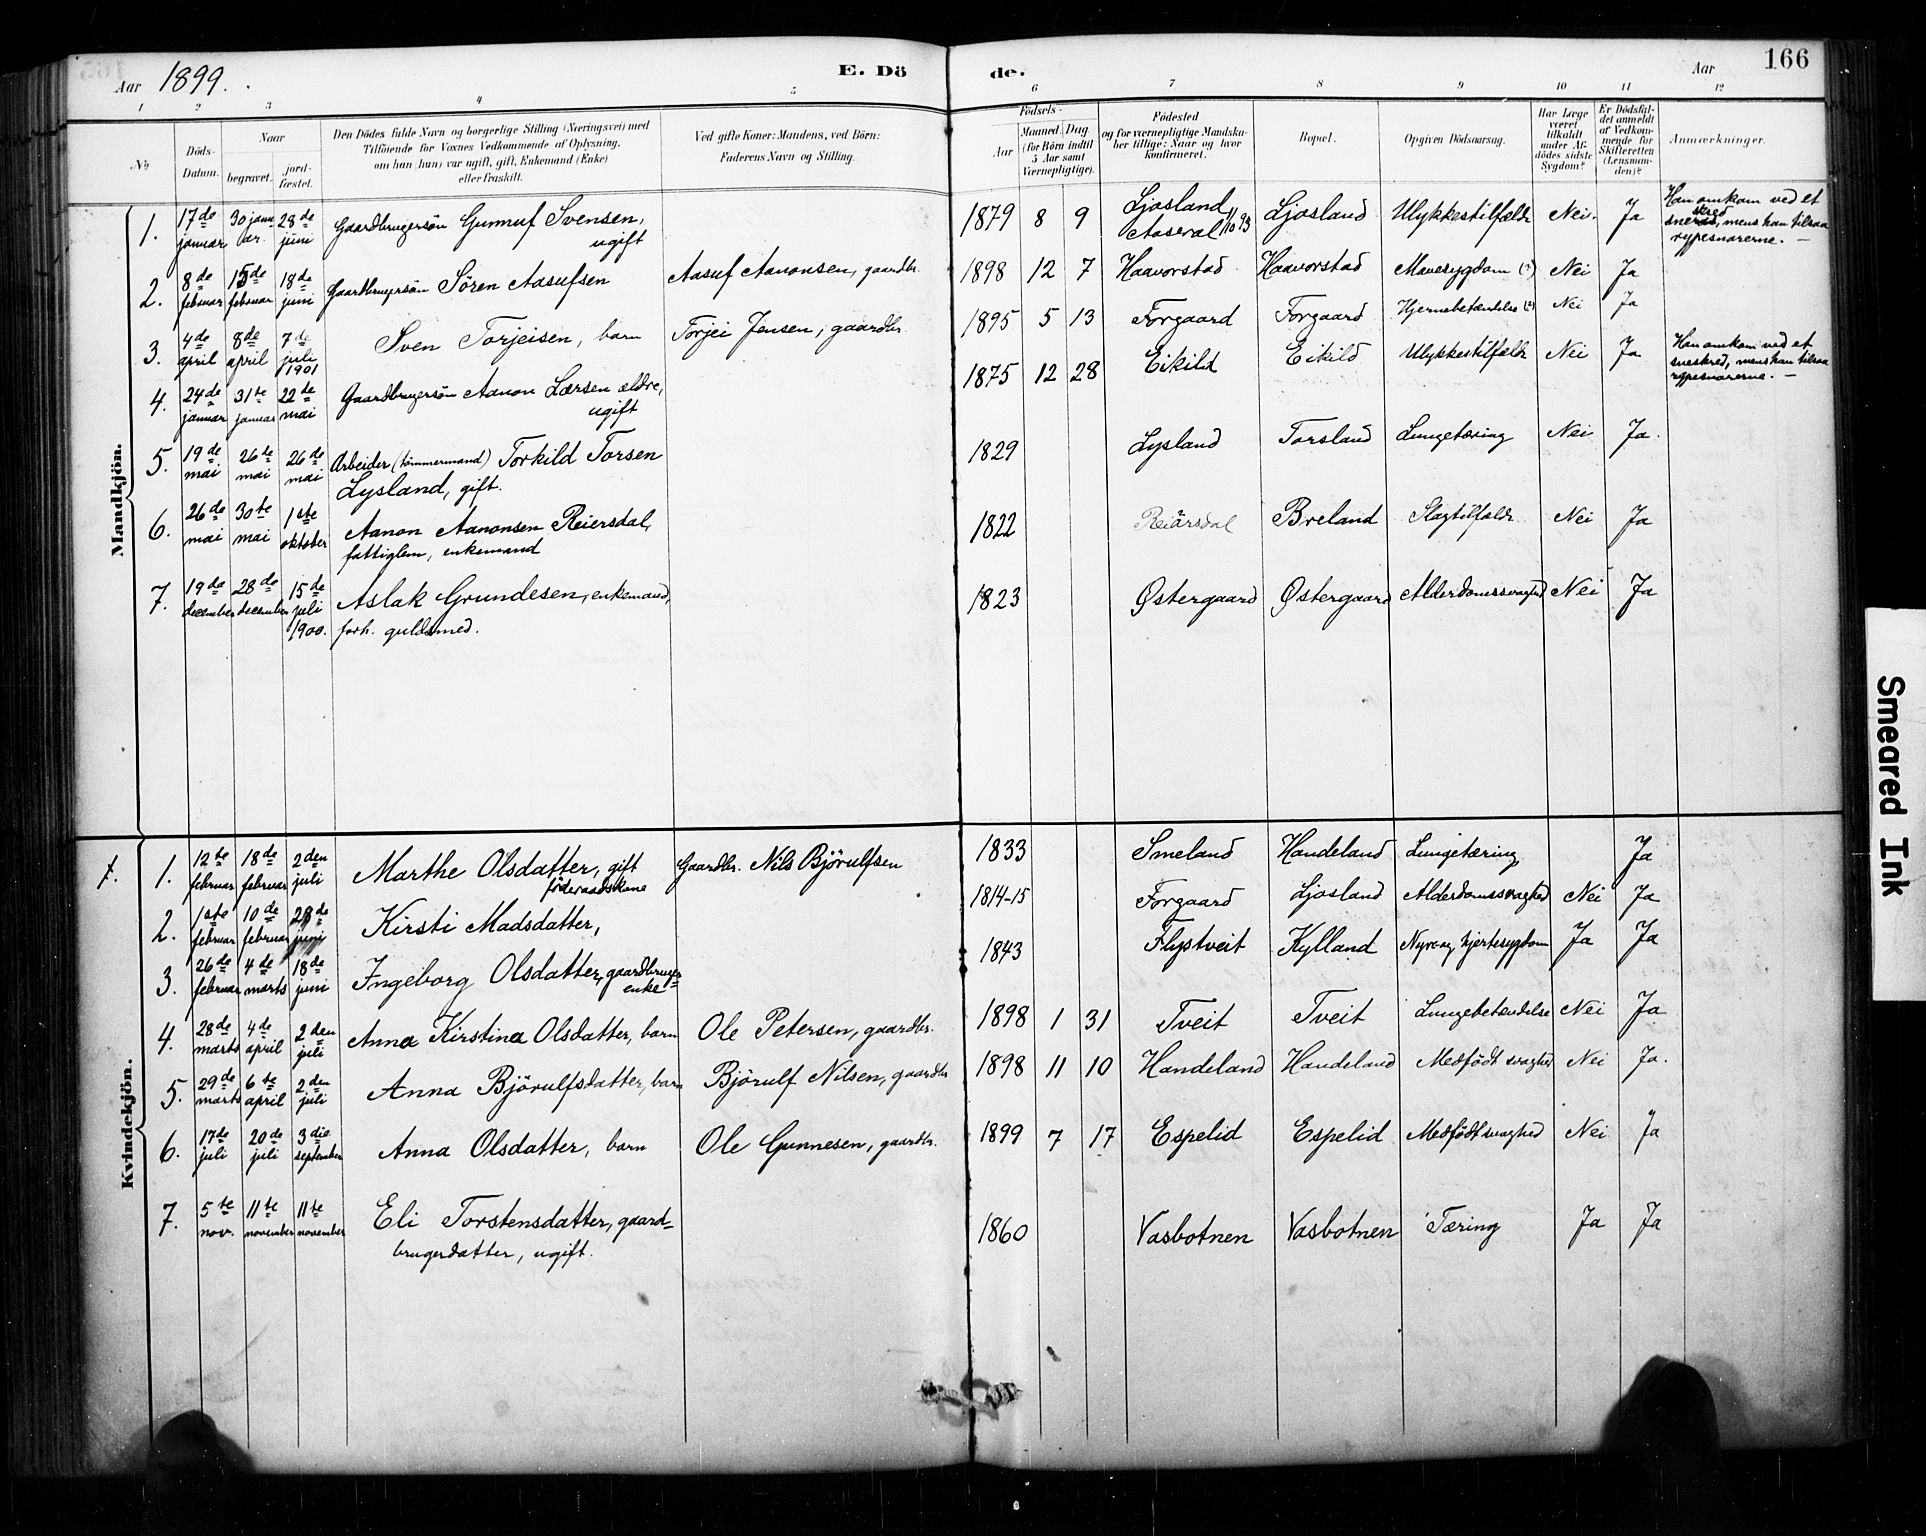 Aar 1899. E. Döde. Aar 166
1 2 3 4 5 6 7 8 9 10 11 12
No
Döds-Datum.
Naar
begravet.
jordfæstet.
Den Dödes fulde Navn og borgerlige Stilling (Næringsvei) med
Tilföiende for Voxnes Vedkommende af Oplysning,
om han (hun) var ugift, gift, Enkemand (Enke)
eller fraskilt.
Ved gifte Koner: Mandens, ved Börn:
Faderens Navn og Stilling.
Födsels-
Aar
Maaned. Dag
(for Börn indtil
5 Aar samt
Værnepligtige).
Födested
og for værnepligtige Mandskaber tillige: Naar og hvor
konfirmeret.
Bopæl.
Opgiven Dödsaarsag.
Har Læge
været
tilkaldt
under Afdödes sidste
Sygdom?
Er Dödsfaldet anmeldt
af Vedkommende for
Skifteretten
(Lensmanden)?
Anmærkninger.
Mandkjön.
1. 17de januar 30 januar. 28de juni Gaardbrugersön Gunnuf Svensen, ugift 1879 8 9 Ljosland Aaseral 1/10 93 Ljosland Ulykkestilfælde Nei. Ja Han omkom ved et sneskred, mens han tilsaa rypesnarerne. —
2. 8de februar 15de februar 18de juni Gaardbrugersön Sören Aasufsen Aasuf Aanonsen, gaardbr. 1898 12 7 Haavorstad Haavorstad Mavesygdom (?) Nei Ja
3. 4de april 8de april 7de juli 1901 Sven Torjeisen, barn Torjei Jensen, gaardbr. 1895 5 13 Forgaard Forgaard Hjernebetændelse (?) Nei Ja
4. 24de januar 31te januar 22de mai Gaardbrugersön Aanon Larsen ældre, ugift 1875 12 28 Eikild Eikild Ulykkestilfælde Nei Ja Han omkom ved et sneskred, mens han tilsaa rypesnarerne. —
5. 19de mai 26de mai 26de mai Arbeider (tömmermand) Torkild Torsen Lysland, gift. 1829 Lysland Torsland Lungetæring Nei Ja.
6. 26de mai 30te mai 1ste oktober Aanon Aanonsen Reiersdal, fattiglem, enkemand 1822 Reiärsdal Breland Slagtilfælde Nei Ja
7. 19de december 28de december 15de juli 1900. Aslak Grundesen, enkemand, forh. guldsmed. 1823 Østergaard Østergaard Alderdomssvaghed Nei Ja
Kvindekjön.
1. 1. 12te februar 18de februar 2den juli Marthe Olsdatter, gift föderaadskone Gaardbr. Nils Björulfsen 1833 Smeland Handeland Lungetæring Ja
2. 1ste februar 10de februar juni Kirsti Madsdatter, 1814-15 Forgaard Ljosland Alderdomssvaghed Nei Ja
3. 26de februar 4de marts 18de juni Ingeborg Olsdatter, gaardbruger=enke 1843 Flystveit Kylland Nyre og hjertesygdom Ja Ja
4. 28de marts 4de april 2den juli Anna Kirstina Olsdatter, barn Ole Petersen, gaardbr. 1898 1 31 Tveit Tveit Lungebetændelse Nei Ja
5. 29de marts 6te april 2den juli Anna Björulfsdatter, barn Björulf Nilsen, gaardbr 1898 11 10 Handeland Handeland Medfödt svaghed Nei Ja.
6. 17de juli 20de juli 3die september Anna Olsdatter, barn Ole Gunnesen, gaardbr. 1899 7 17 Espelid Espelid Medfödt svaghed Nei Ja
7. 5te nov. 11te november 11te november Eli Torstensdatter, gaard=brugerdatter, ugift. 1860 Vasbotnen Vasbotnen Tæring Ja Ja
Smeared Ink